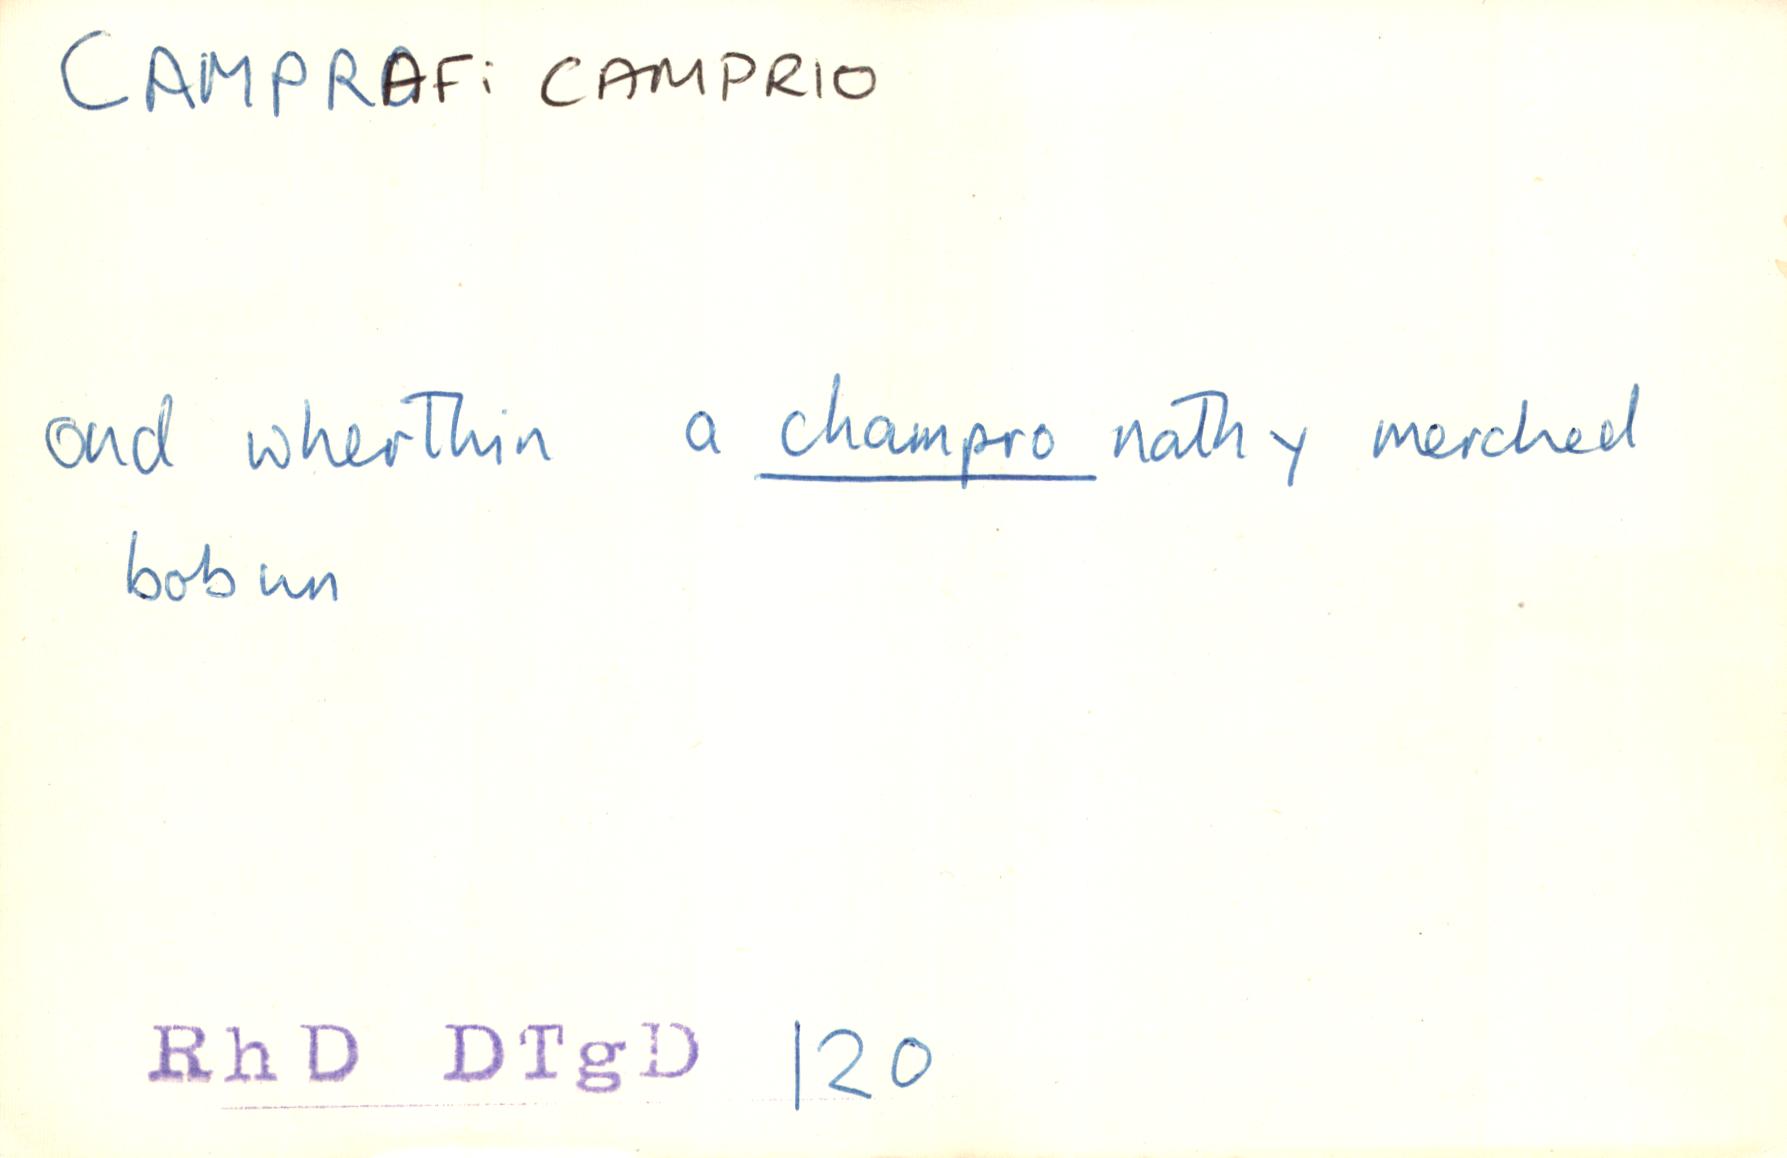 CAMPRAFi CAMPRIO
ond wherthin a champro nath y merched
bob un
RhD DTgD 120